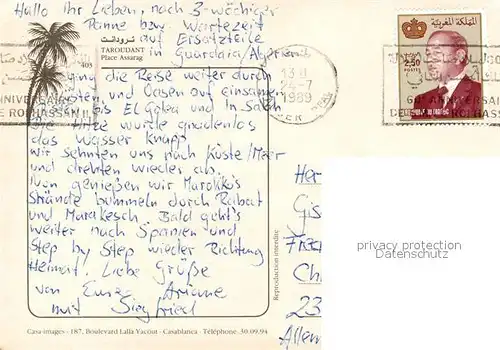 Hallo Ihr Lieben, nach 3-wöchiger
Panne bzw. Wartezeit
auf Ersatzteile
in Guardaia/Algerien
ترودانت
TAROUDANT
Place Assarag
403
ging die Reise weiter durch
Wüsten und Oasen auf einsamer
bis El Golea und In Salah
Die Hitze wurde gnadenlos
das Wasser knapp
wir sehnten uns nach Küste/Meer
und drehten wieder ab.
Nun genießen wir Marokko's
Strände bummeln durch Rabat
und Marakesch. Bald geht's
weiter nach Spanien und
Step by Step wieder Richtung
Heimat. Liebe Grüße
von Eurer Ariane
mit Siegfried
1989
NIVERSAIRE
DE ROI HASSAN II
المملكة المغربية
2,50
POSTES
60e ANNIVERSAI
DE ROI HASSAN
Her
Gis
Ch
23
Allem
privacy protection
Datenschutz
Reproduction interdite
Casa-images - 187, Boulevard Lalla Yacout - Casablanca - Téléphone 30.09.94